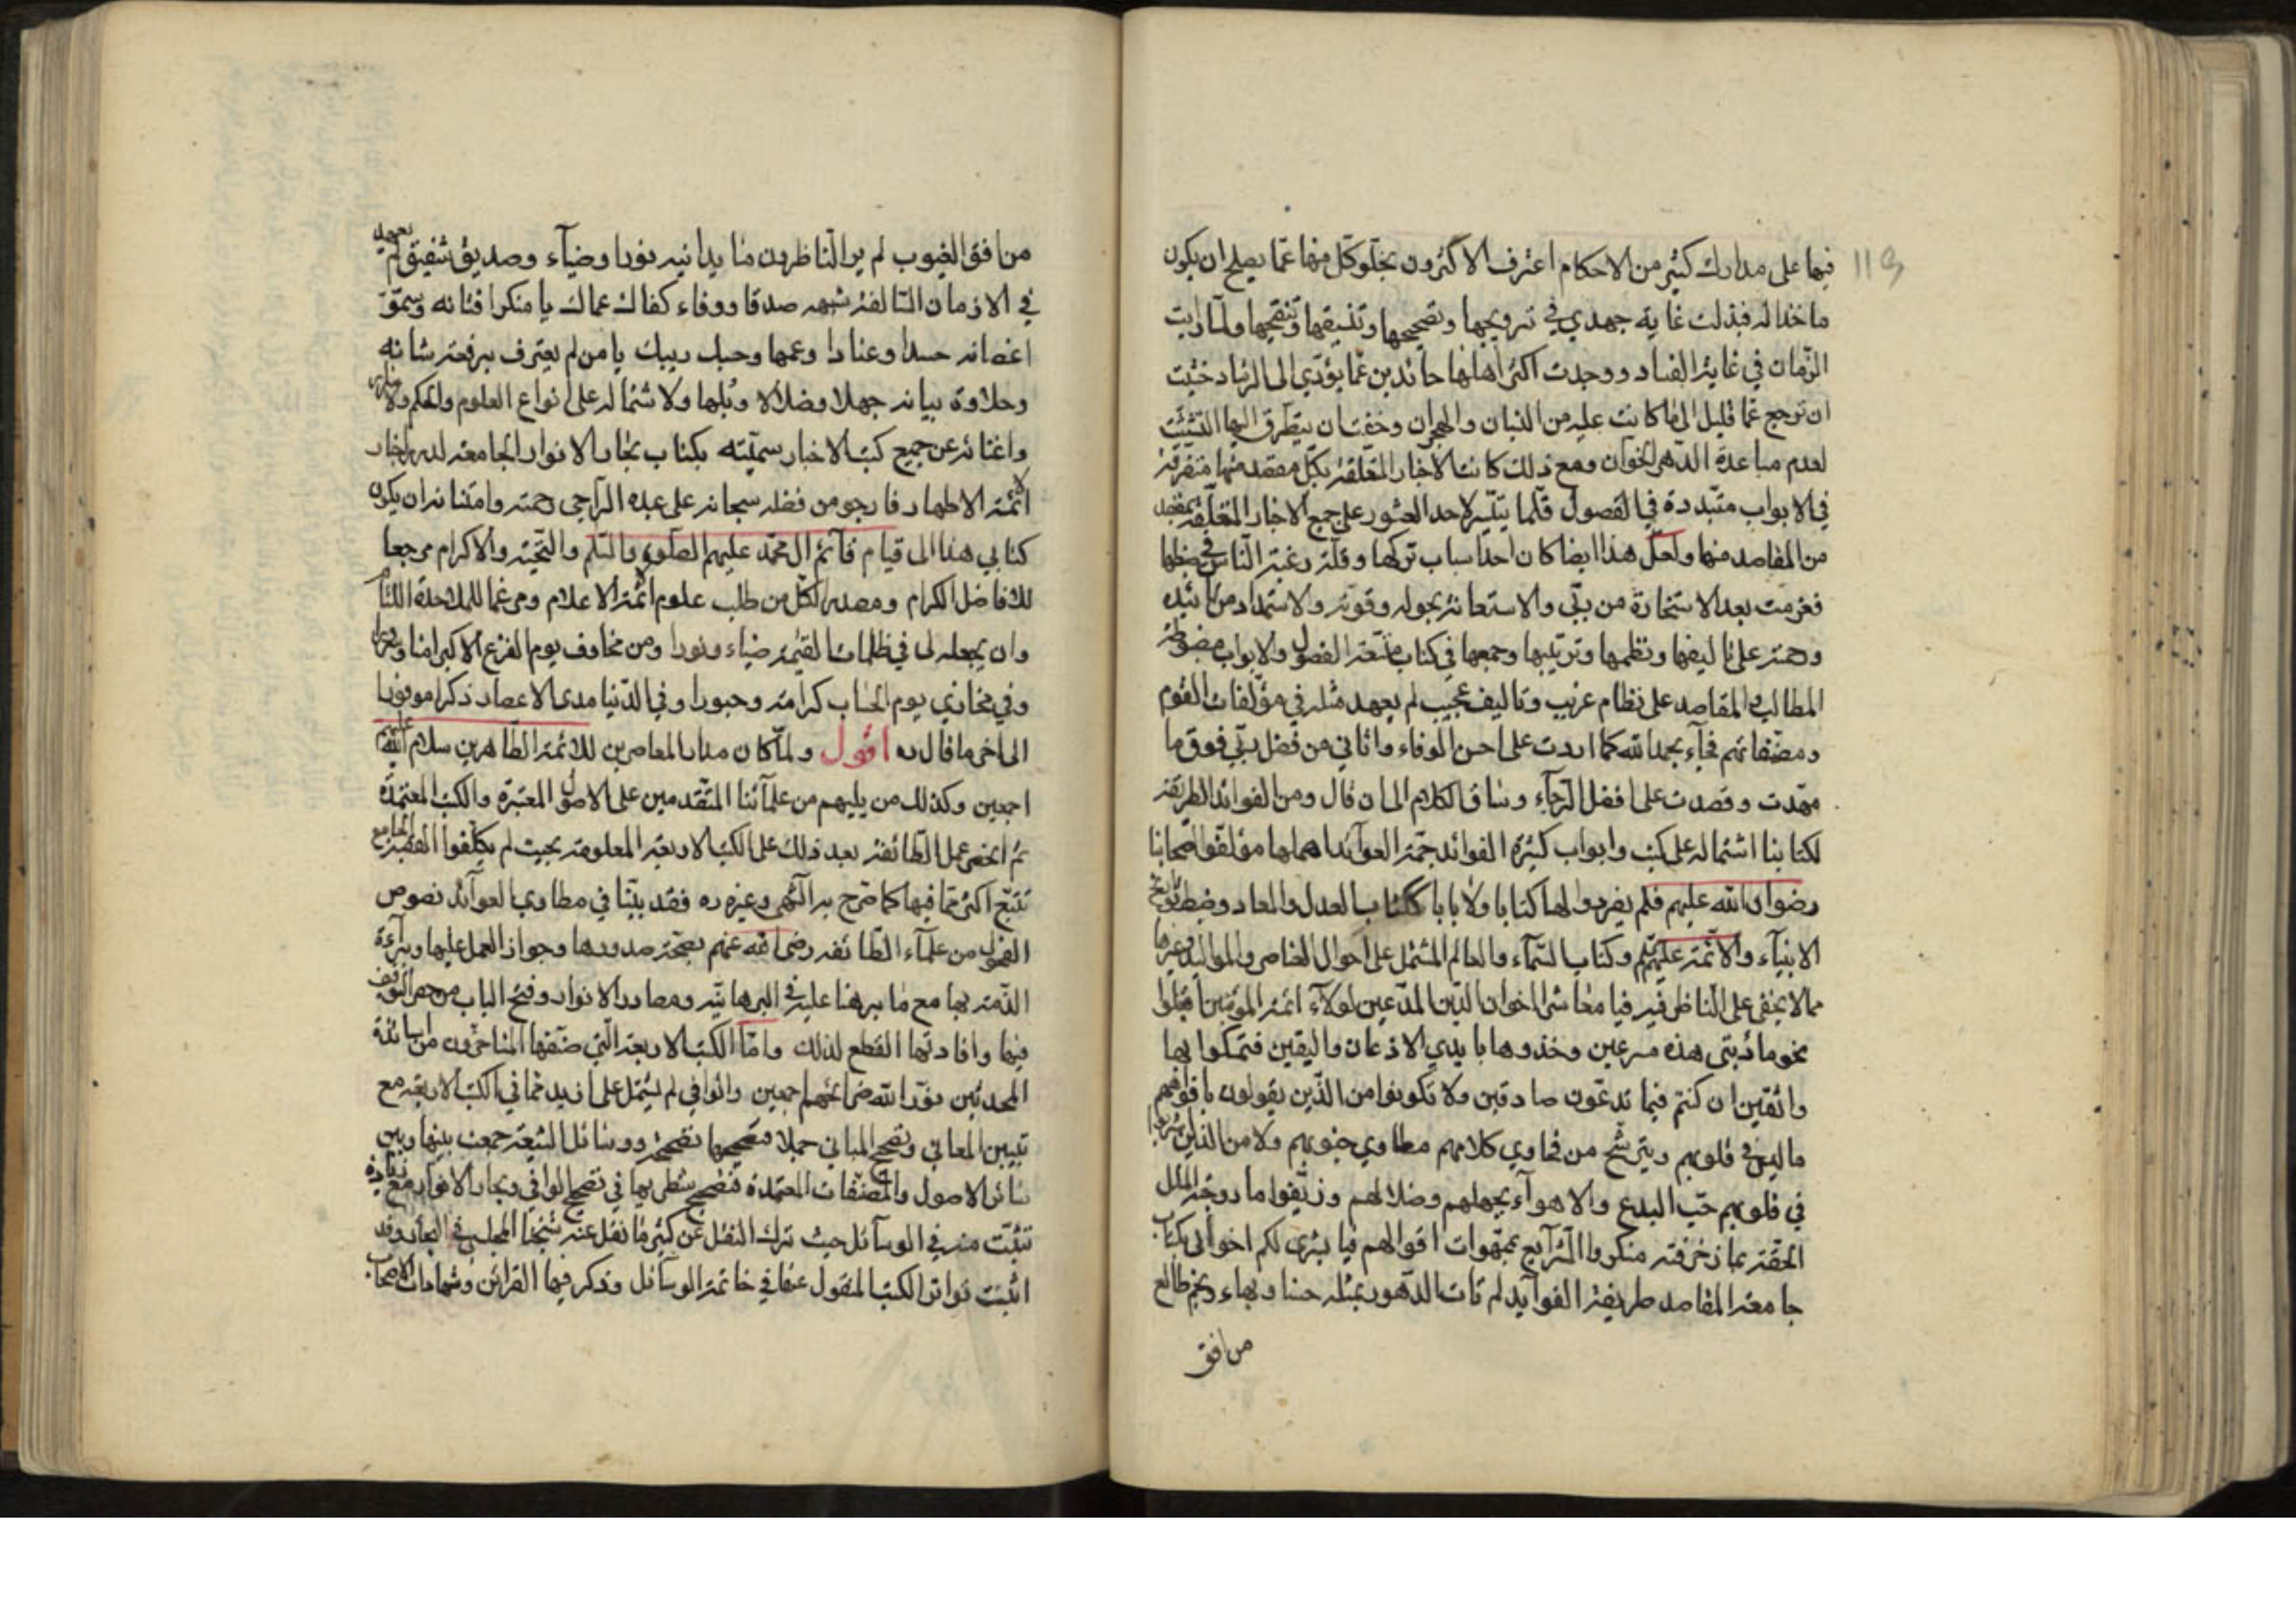 ١١٩
فيها على مدارك كثير من الاحكام اعترف الاكثرون بخلو كل منها عما يصلح ان يكون
ماخذا له فبذلت غاية جهدي في ترويجها وتصحيحها وتنسيقها وتنقيحها ولما رايت
الزمان في غاية الفساد ووجدت اكثر اهلها حائدين عما يؤدي الى الرشاد خشيت
ان ترجع عما قليل الى ما كانت عليه من النسيان والهجران وخفت ان يتطرق اليها التشتت
لعدم مساعدة الدهر الخوان ومع ذلك كانت الاخبار المتعلقة بكل مقصد منها متفرقة
في الابواب متبددة في الفصول قلما يتيسر لاحد العثور على جميع الاخبار المتعلقة بمقصد
من المقاصد منها ولعل هذا ايضا كان احد اسباب تركها وقلة رغبة الناس في ضبطها
فعزمت بعد الاستخارة من ربي والاستعانة بحوله وقوته والاستمداد من تاييده
ورحمته على تاليفها ونظمها وترتيبها وجمعها في كتاب متسقة الفصول والابواب مضبوطة
المطالب والمقاصد على نظام غريب وتاليف عجيب لم يعهد مثله في مؤلفات القوم
ومصنفاتهم فجاء بحمد الله كما اردت على احسن الوفاء واتاني من فضل ربي فوق ما
مهدت وقصدت على افضل الرجاء وساق الكلام الى ان قال ومن الفوائد الطريفة
لكتابنا اشتماله على كتب وابواب كثيرة الفوائد جمة العوائد اهملها مؤلفوا اصحابنا
رضوان الله عليهم فلم يفردوا لها كتابا ولا بابا ككتاب العدل والمعاد وضبط تواريخ
الانبياء والائمة عليهم السلم وكتاب السماء والعالم المشتمل على احوال العناصر والمواليد وغيرها
مما لا يخفى على الناظر فيه فيا معاشر اخوان الدين المدعين لولاء ائمة المؤمنين اقبلوا
نحو مائدتي هذه مسرعين وخذوها بايدي الاذعان واليقين فتمسكوا بها
واثقين ان كنتم فيما تدعون صادقين ولا تكونوا من الذين يقولون بافواههم
ما ليس في قلوبهم ويترشح من فحاوي كلامهم مطاوي جنوبهم ولا من الذين اشربوا
في قلوبهم حب البدع والاهواء بجهلهم وضلالهم وزيفوا ما روجته الملل
الحقة بما زخرفته منكروا الشرايع بمموهات اقوالهم فيا بشرى لكم اخواني بكتاب
جامعة المقاصد طريفة الفوايد لم تات الدهور بمثله حسنا وبهاء ونجم طالع
من افق
من افق الغيوب لم ير الناظرون ما يدانيه نورا وضياء وصديق شفيق لم يعهد
في الازمان السالفة شبهه صدقا ووفاء كفاك عماك يا منكرا فنانه وسمو
اغصانه حسدا وعنادا وعمها وحسبك ريبك يا من لم يعترف برفعة شانه
وحلاوة بيانه جهلا وضلالا وبلها ولاشتماله على انواع العلوم والحكم والاسرار
واغنائه عن جميع كتب الاخبار سميته بكتاب بحار الانوار الجامعة لدرر اخبار
الائمة الاطهار فارجو من فضله سبحانه على عبده الراجي رحمته وامتنانه ان يكون
كتابي هذا الى قيام قائم ال محمد عليهم الصلوة والسلم والتحية والاكرام مرجعا
للافاضل الكرام ومصدرا لكل من طلب علوم ائمة الاعلام ومرغما للملاحدة اللئام
وان يجعله لي في ظلمات القيمة ضياء ونورا ومن مخاوف يوم الفزع الاكبر امنا وسرورا
وفي مخازي يوم الحساب كرامة وحبورا وفي الدنيا مدى الاعصار ذكرا موفورا
الى اخر ما قال ره اقول ولما كان مدار المعاصرين للائمة الطاهرين سلام الله عليهم
اجمعين وكذلك من يليهم من علمائنا المتقدمين على الاصول المعتبرة والكتب المعتمدة
ثم انحصر عمل الطائفة بعد ذلك على الكتب الاربعة المعلومة بحيث لم يكلفوا الفقيه الجامع
تتبع اكثر مما فيها كما صرح به الشهيد وغيره ره فقد بينا في مطاوي العوائد نصوص
الفحول من علماء الطائفة رضى الله عنهم بصحة صدورها وجواز العمل عليها وبراءة
الذمة بها مع ما برهنا عليه في البرهانية ومصادر الانوار وفتح الباب من حصر التوقف
فيها وافادتها القطع لذلك واما الكتب الاربعة التي صنفها المتاخرون من اساتذة
المحدثين نور الله ضرائحهم اجمعين والوافي لم يشتمل على ازيد مما في الكتب الاربعة مع
تبيين المعاني وتصحيح المباني جملا فتصحيحها تصحيحه ووسائل الشيعة جمعت بينها وبين
سائر الاصول والمصنفات المعتمدة فتصحيح شطر بها في تصحيح الوافي وبحار الانوار مع زيادة
تثبت منه في الوسائل حيث ترك النقل عن كثير ما نقل عنه شيخنا المجلسي في البحار وقد
اثبت تواتر الكتب المنقول عنها في خاتمة الوسائل وذكر فيها القرائن وشهادات الاصحاب